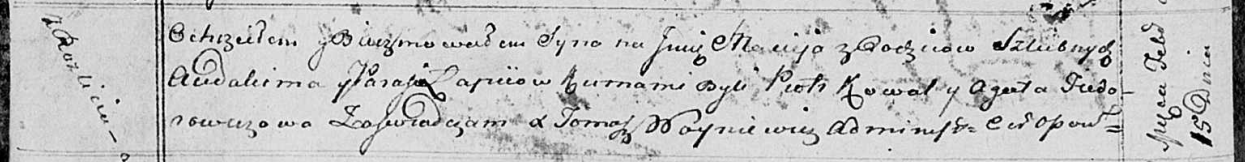 Ochrzciłem y Bierzmowałem Syna na Jmię Macieja z Rodzicow Szlubnych
Audakima y Parasi Łapiiow Kumami Byli Piotr Kowal y Agata Fiedo-
rowiczowa Zaświadczam X Tomasz Woyniewicz Administr:
15 Dnia